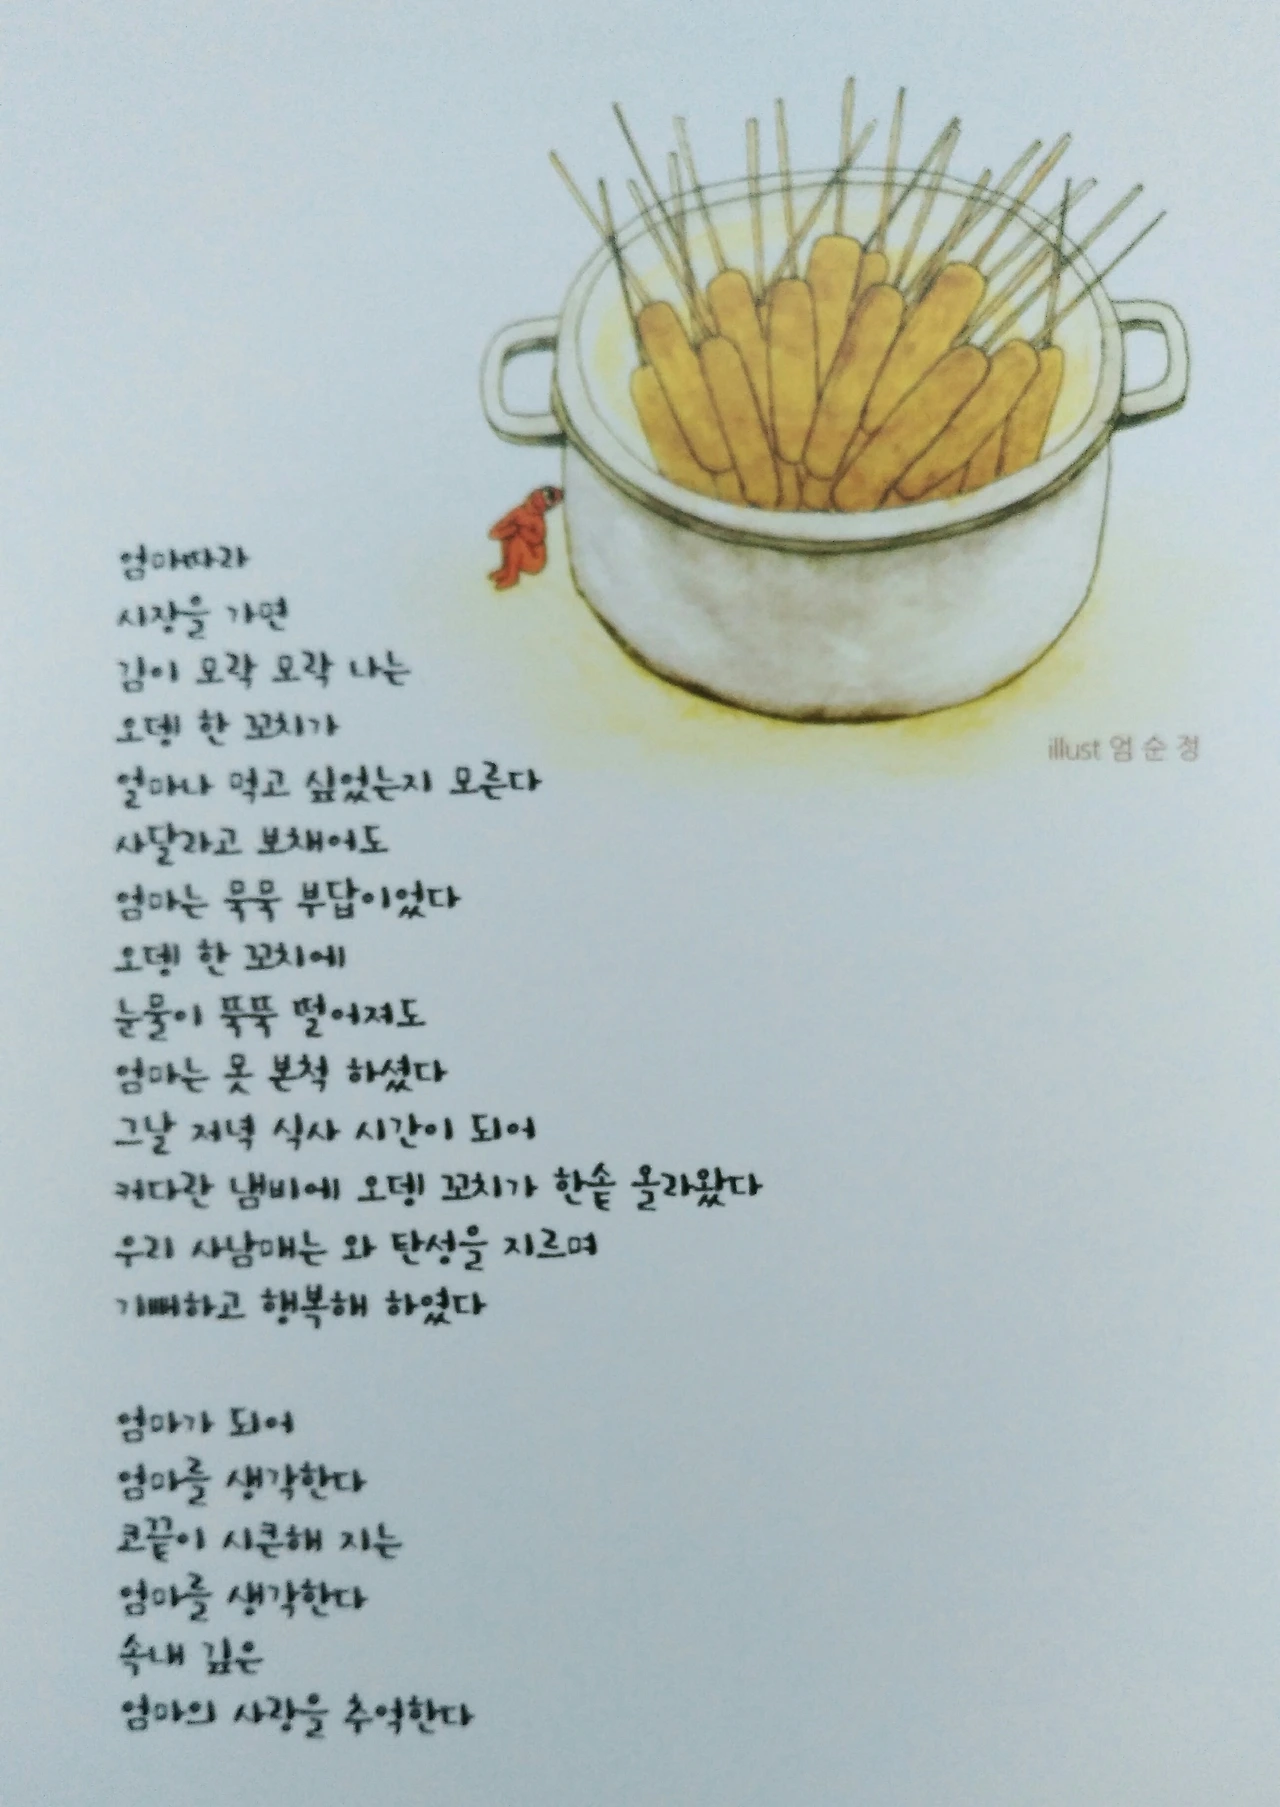 illust 엄순정
엄마따라
시장을 가면
김이 모락 모락 나는
오뎅 한 꼬치가
얼마나 먹고 싶었는지 모른다
사달라고 보채어도
엄마는 묵묵 부답이었다
오뎅 한 꼬치에
눈물이 뚝뚝 떨어져도
엄마는 못 본척 하셨다
그날 저녁 식사 시간이 되어
커다란 냄비에 오뎅 꼬치가 한솥 올라왔다
우리 사남매는 와 탄성을 지르며
기뻐하고 행복해 하였다
엄마가 되어
엄마를 생각한다
코끝이 시큰해 지는
엄마를 생각한다
속내 깊은
엄마의 사랑을 추억한다